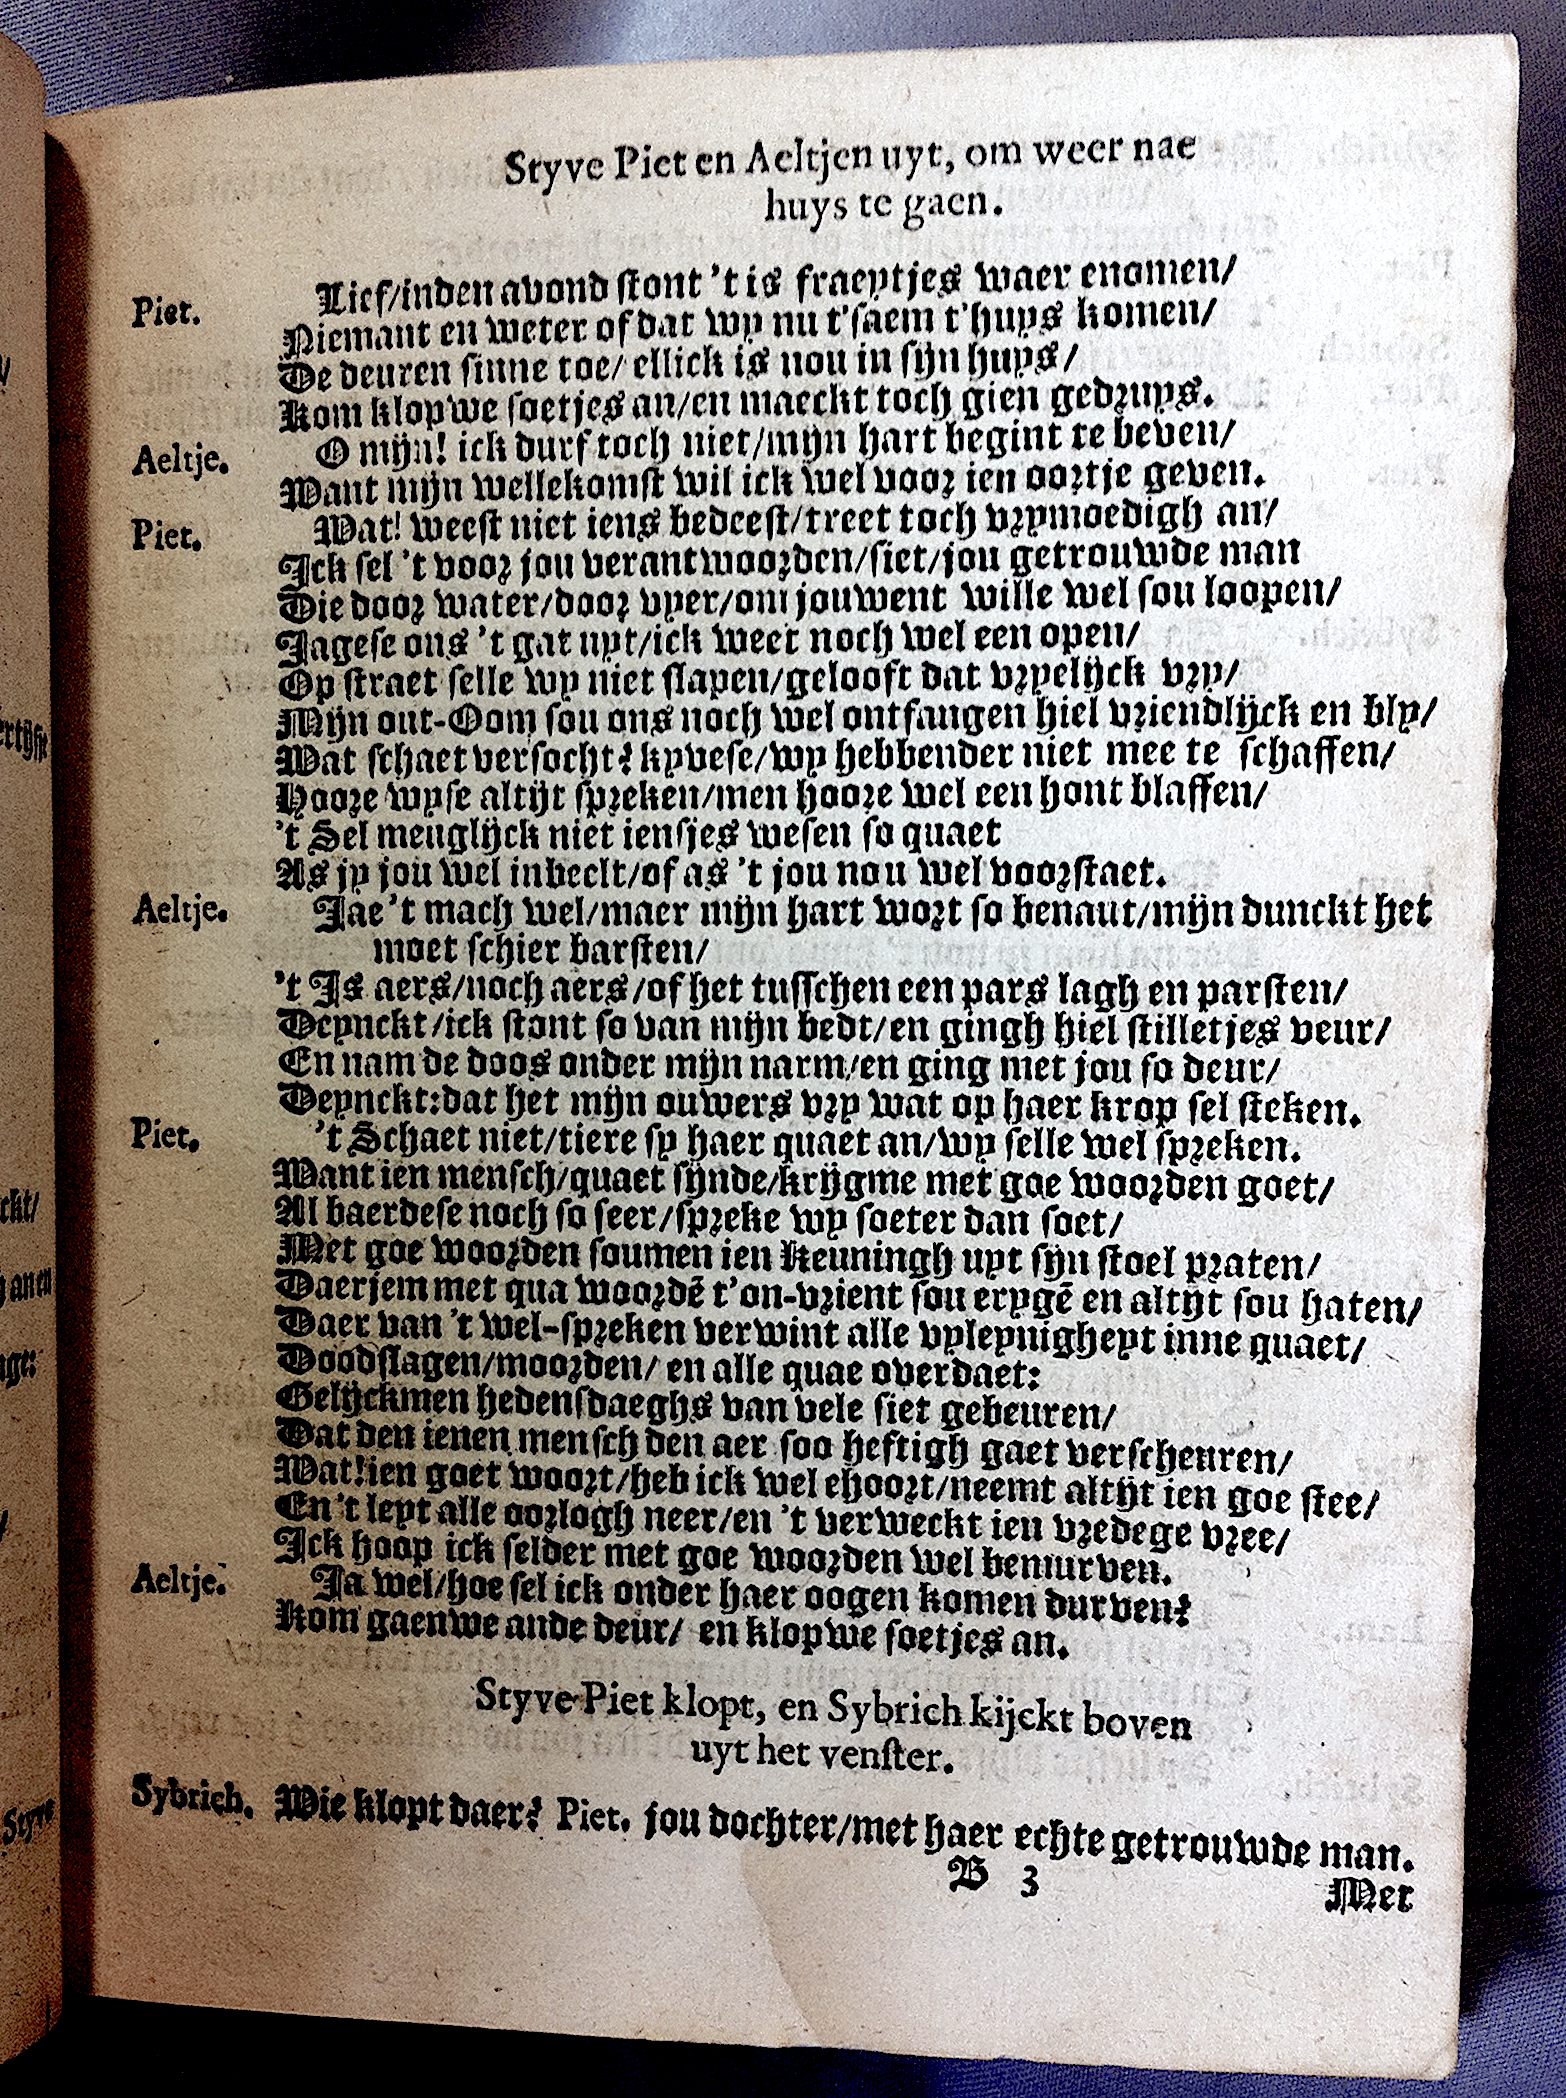 Styve Piet en Aeltjen uyt, om weer nae
huys te gaen.
Piet. Lief/inden avond stont 't is fraeytjes waer enomen/
Niemant en weter of dat wy nu t'saem t'huys komen/
De deuren sinne toe/ ellick is nou in sijn huys/
Kom klopwe soetjes an/en maeckt toch gien gedruys.
Aeltje. O mijn! ick durf toch niet/mijn hart begint te beven/
Want mijn wellekomst wil ick wel voor ien oortje geven.
Piet. Wat! weest niet iens bedeest/treet toch vrymoedigh an/
Ick sel 't voor jou verantwoorden/siet/jou getrouwde man
Die door water/door vyer/om jouwent wille wel sou loopen/
Jagese ons 't gat uyt/ick weet noch wel een open/
Op straet selle wy niet slapen/gelooft dat vryelijck vry/
Mijn out-Oom sou ons noch wel ontfangen hiel vriendlijck en bly/
Wat schaet versocht? kyvese/wy hebbender niet mee te schaffen/
Hoore wyse altijt spreken/men hoore wel een hont blaffen/
't Sel meuglijck niet iensjes wesen so quaet
As jy jou wel inbeelt/of as 't jou nou wel voorstaet.
Aeltje. Jae 't mach wel/maer mijn hart wort so benaut/mijn dunckt het
moet schier barsten/
't Is aers/noch aers/of het tusschen een pars lagh en parsten/
Deynckt/ick stont so van mijn bedt/en gingh hiel stilletjes veur/
En nam de doos onder mijn narm/en ging met jou so deur/
Deynckt:dat het mijn ouwers vry wat op haer krop sel steken.
Piet. 't Schaet niet/tiere sy haer quaet an/wy selle wel spreken.
Want ien mensch/quaet sijnde/krijgme met goe woorden goet/
Al baerdese noch so seer/spreke wy soeter dan soet/
Met goe woorden soumen ien Keuningh uyt sijn stoel praten/
Daerjem met qua woordē t'on-vrient sou erygē en altijt sou haten/
Daer van 't wel-spreken verwint alle vyleynigheyt inne quaet/
Doodslagen/moorden/ en alle quae overdaet:
Gelijckmen hedensdaeghs van vele siet gebeuren/
Dat den ienen mensch den aer soo heftigh gaet verscheuren/
Wat!ien goet woort/heb ick wel ehoort/neemt altijt ien goe stee/
En 't leyt alle oorlogh neer/en 't verweckt ien vredege vree/
Ick hoop ick selder met goe woorden wel bemurven.
Aeltje. Ja wel/hoe sel ick onder haer oogen komen durven?
Kom gaenwe ande deur/ en klopwe soetjes an.
Styve Piet klopt, en Sybrich kijckt boven
uyt het venster.
Sybrich. Wie klopt daer? Piet. jou dochter/met haer echte getrouwde man.
B 3
Met